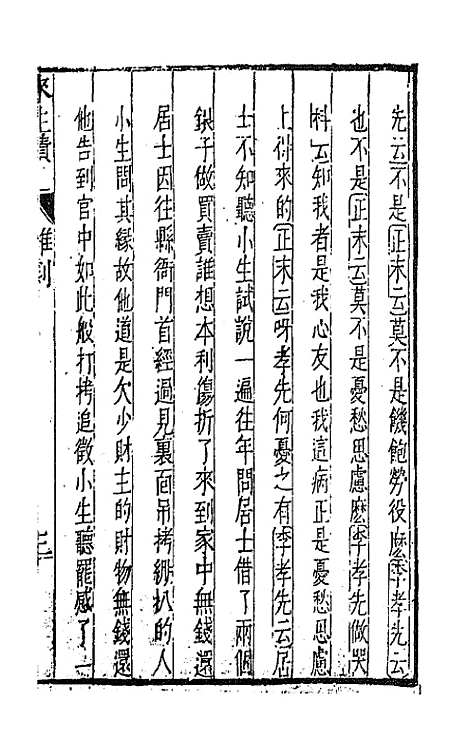 先云不是正末云莫不是饑飽勞役麽李孝先云
也不是正末云莫不是憂愁思慮麽李孝先做哭
科云知我者是我心友也我這病正是憂愁思慮
上得來的正末云呀孝先何憂之有李孝先云居
士不知聽小生試說一遍往年問居士借了兩個
銀子做買賣誰想本利傷折了來到家中無錢還
居士因往縣衙門首經過見裏面吊拷綳扒的人
小生問其緣故他道是欠少財主的財物無錢還
他告到官中如此般打拷追徵小生聽罷感了一
來生債
雜劇